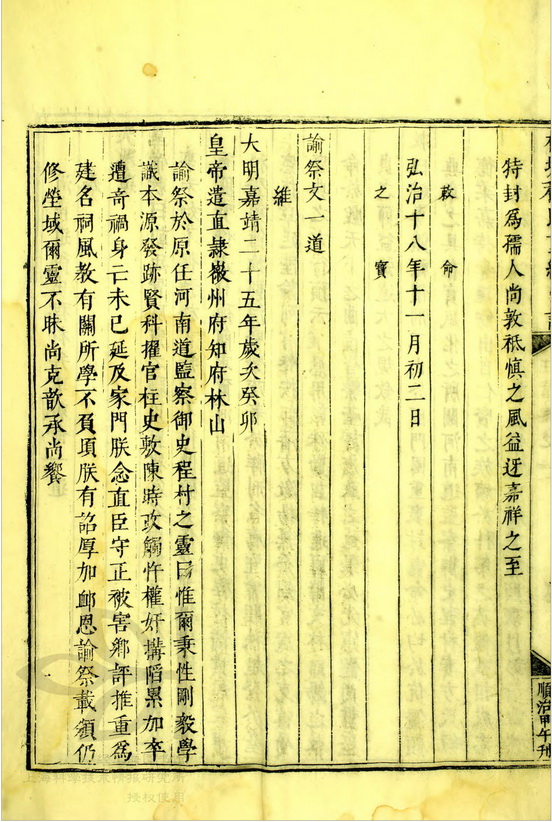 特封爲孺人尚敦祗慎之風益迓嘉祥之至
敕 命
弘治十八年十一月初二日
之 寶
諭祭文一道
維
大明嘉靖二十五年歲次癸卯
皇帝遣直隸徽州府知府林山
諭祭於原任河南道監察御史程材之靈曰惟爾秉性剛毅學
識本源發跡賢科擢官柱史敷陳時政觸忤權奸搆陷累加卒
遭奇禍身亡未已延及家門朕念直臣守正被害鄉評推重爲
建名祠風教有關所學不負項朕有詔厚加卹恩諭祭載頒仍
修塋域爾靈不昧尚克歆承尚饗
順治甲午刊
授权使用